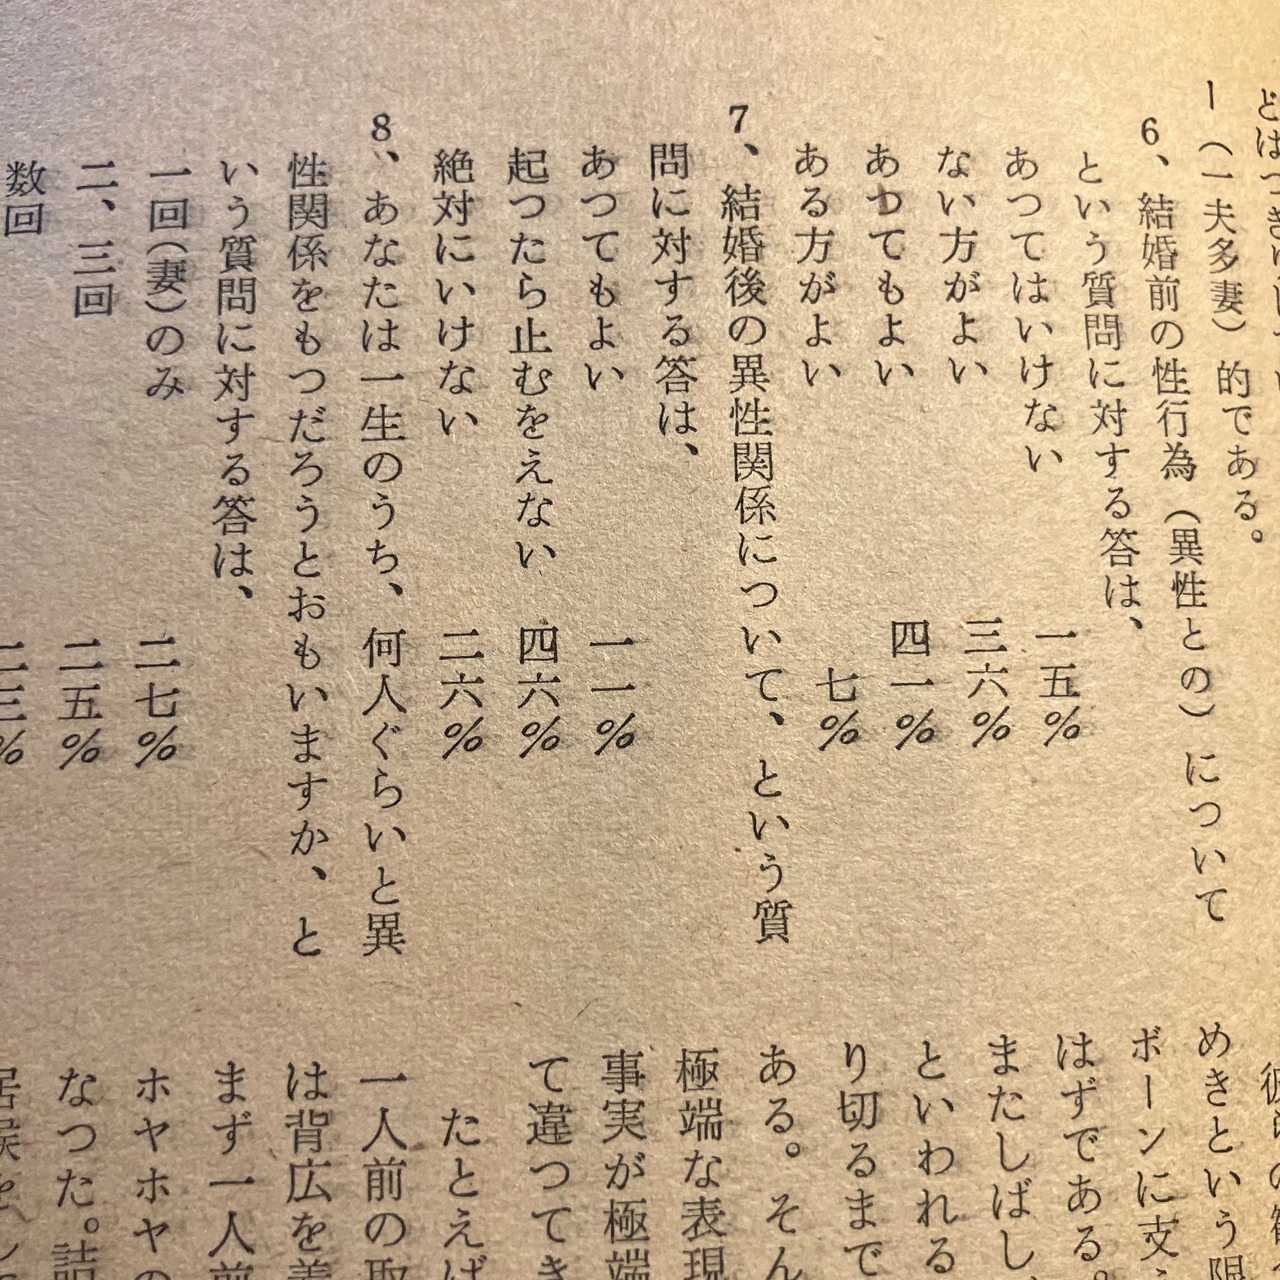 ー（一夫多妻）的である。
6、結婚前の性行為（異性との）について
という質問に対する答は、
あつてはいけない　一五％
ない方がよい　三六％
あつてもよい　四一％
ある方がよい　七％
7、結婚後の異性関係について、という質
問に対する答は、
あつてもよい　一一％
起つたら止むをえない　四六％
絶対にいけない　二六％
8、あなたは一生のうち、何人ぐらいと異
性関係をもつだろうとおもいますか、と
いう質問に対する答は、
一回（妻）のみ　二七％
二、三回　二五％
数回　二三％
めきという限
ボーンに支
はずである。
またしばし
といわれる
り切るまで
ある。そん
極端な表現
事実が極端
て違つてき
たとえば
一人前の取
は背広を着
まず一人前
ホヤホヤの
なつた。詰